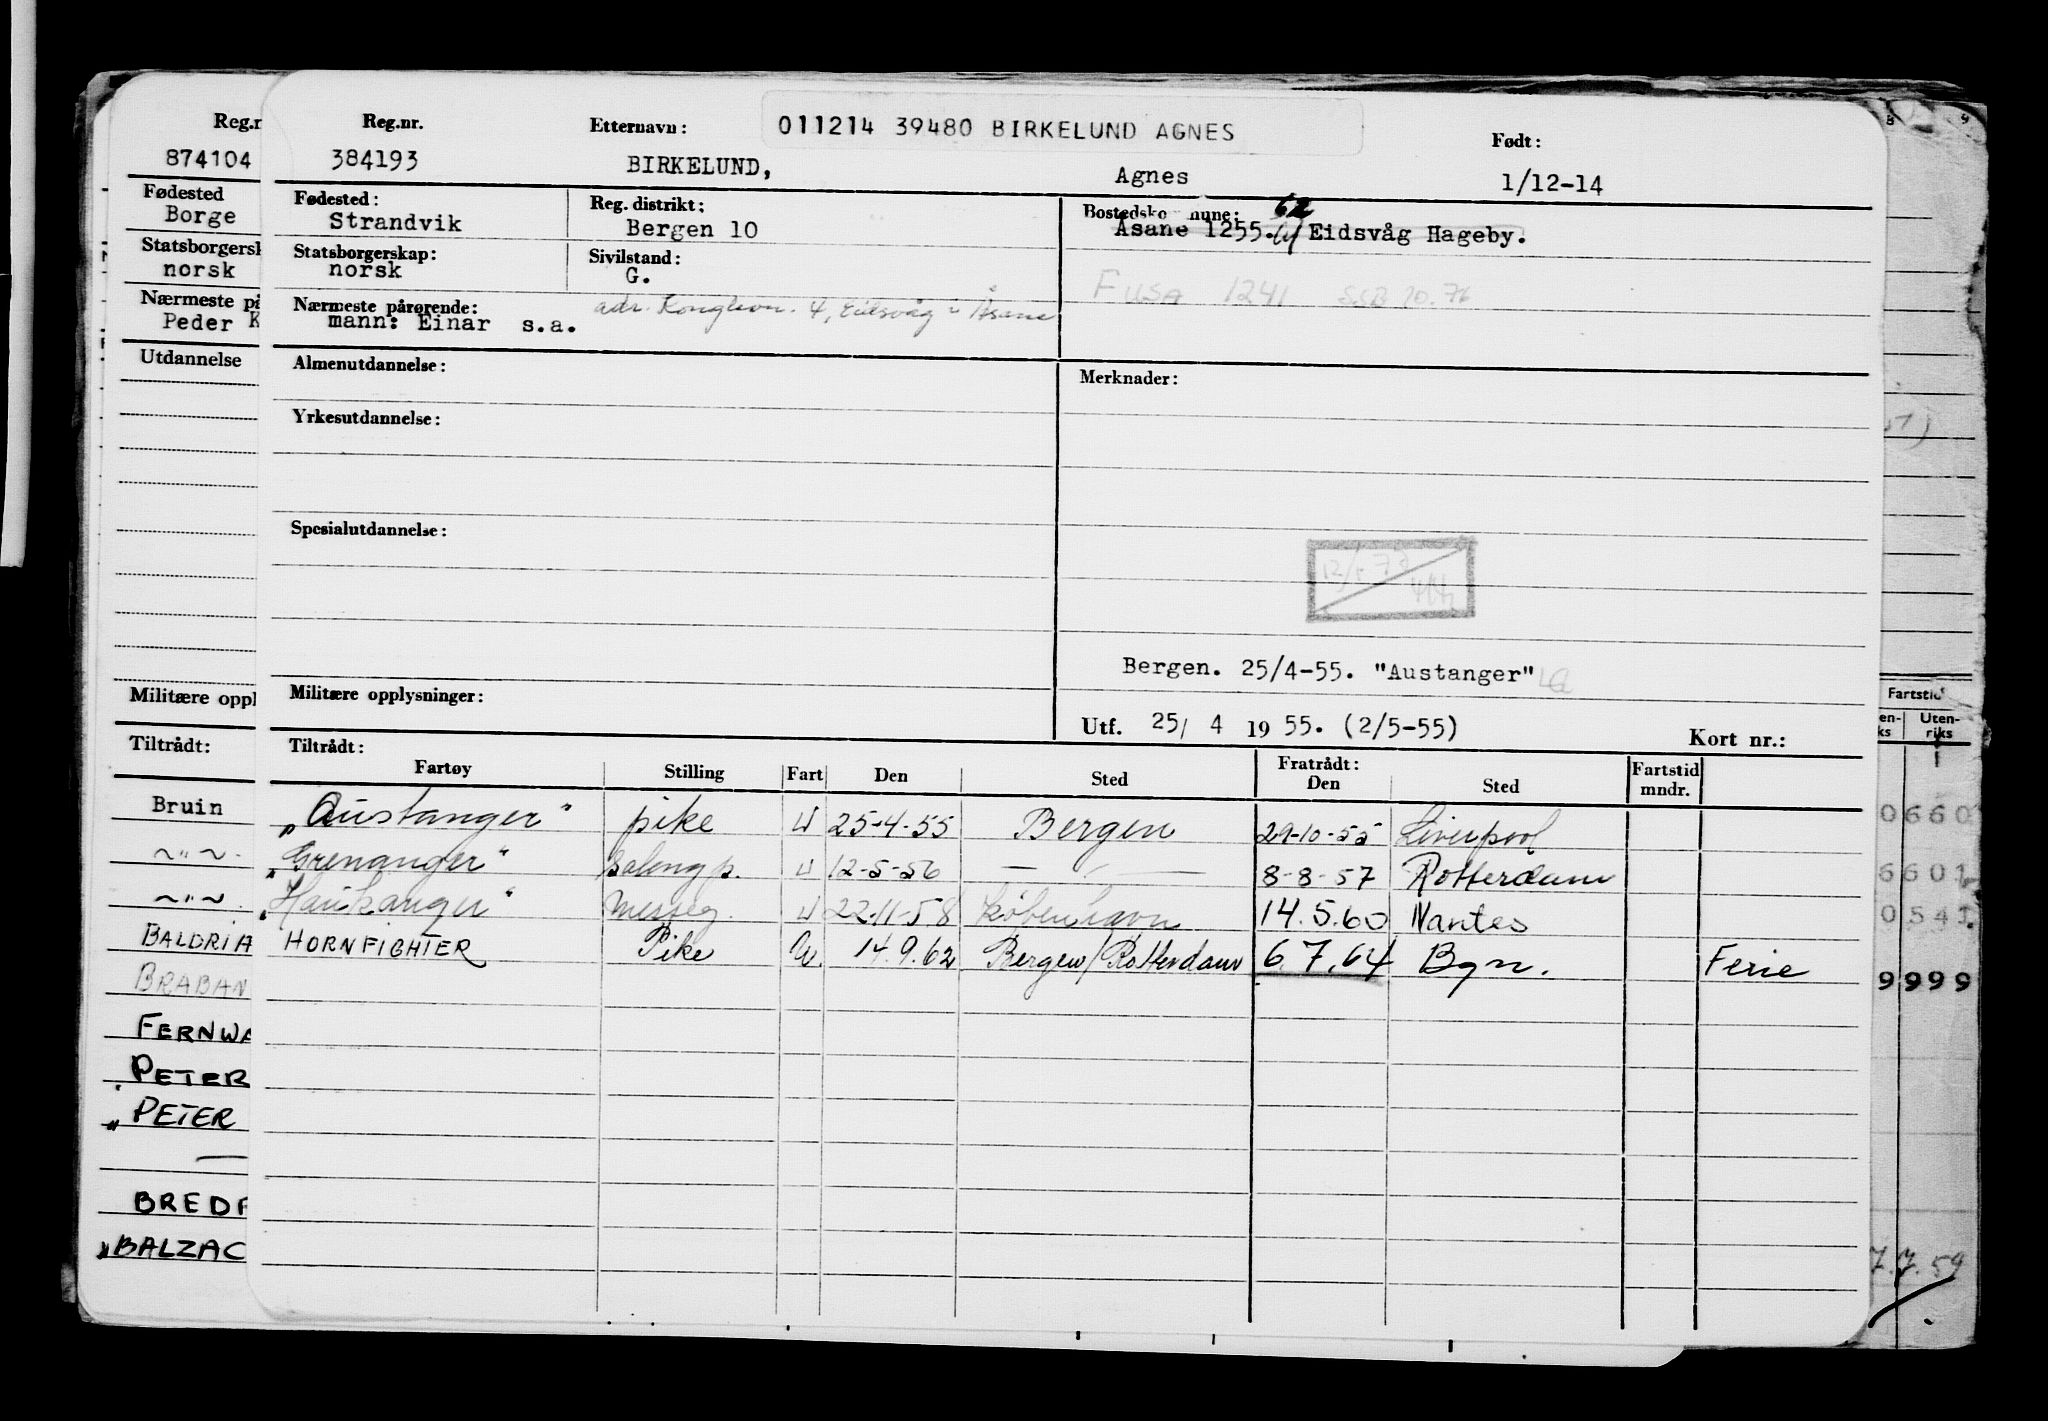 Reg.nr. Etternavn: 011214 39480 BIRKELUND AGNES Født:
384193 BIRKELUND, Agnes 1/12-14
Fødested: Reg. distrikt: Bostedsko mune: 62
Strandvik Bergen 10 Åsane 1255. Eidsvåg Hageby.
Statsborgerskap: Sivilstand:
norsk G. FUSA 1241 SCB 10.76
Nærmeste pårørende:
mann: Einar s.a. adr. Konglevn. 4, Eidsvåg i Åsane
Almenutdannelse: Merknader:
Yrkesutdannelse:
Spesialutdannelse:
Bergen. 25/4-55. "Austanger"
Militære opplysninger:
Utf. 25/ 4 19 55. (2/5-55) Kort nr.:
Tiltrådt: Fratrådt: Fartstid
Fartøy Stilling Fart Den Sted Den Sted mndr.
"Austanger" pike U 25-4-55 Bergen 29-10-55 Liverpool
"Grenanger" salongp. U 12-5-56 — " — 8-8-57 Rotterdam
"Haukanger" Messeg. U 22-11-58 København 14.5.60 Nantes
HORNFIGHTER Pike U. 14.9.62 Bergen/Rotterdam 6.7.64 Bgn. Ferie
Reg.n
874104
Fødested
Borge
Statsborgersk
norsk
Nærmeste på
Peder K
Utdannelse
Militære oppl
Tiltrådt:
Bruin
~"~.
~"~.
BALDRIA
BRABAN
FERNWA
PETER
"PETER
—
BREDF
"BALZAC
8 9
Fartstid
en- Uten-
ks riks
0660
6601
0541
9999
7.7.59